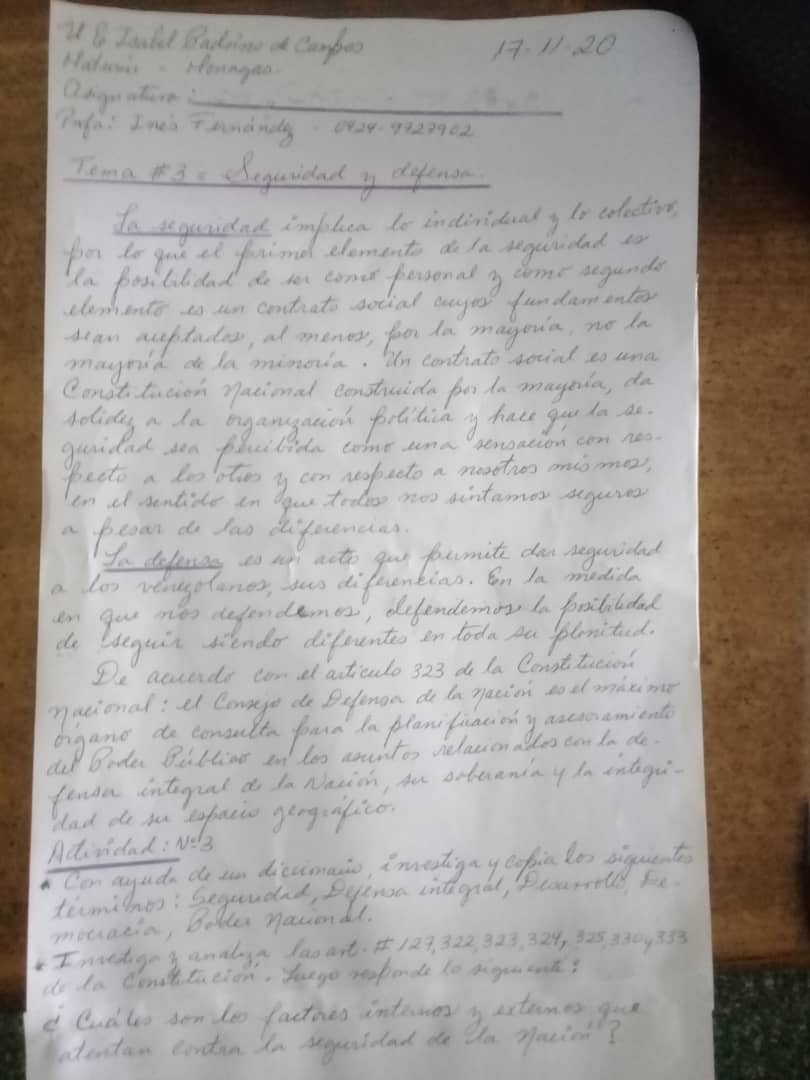 U E Isabel Padrino de Campos 17-11-20
Maturín - Monagas.
Asignatura:
Profa: Inés Fernández - 0424-9727902
Tema # 3 = Seguridad y defensa.
La seguridad implica lo individual y lo colectivo,
por lo que el primer elemento de la seguridad es
la posibilidad de ser como personal y como segundo
elemento es un contrato social cuyos fundamentos
sean aceptados, al menos, por la mayoría, no la
mayoría de la minoria. Un contrato social es una
Constitución Nacional construida por la mayoría, da
solidez a la organización política y hace que la se-
guridad sea percibida como una sensación con res-
pecto a los otros y con respecto a nosotros mismos,
en el sentido en que todos nos sintamos seguros
a pesar de las diferencias.
La defensa es un acto que permite dar seguridad
a los venezolanos, sus diferencias. En la medida
en que nos defendemos, defendemos la posibilidad
de seguir siendo diferentes en toda su plenitud.
De acuerdo con el artículo 323 de la Constitución
Nacional: el Consejo de Defensa de la Nación es el máximo
órgano de consulta para la planificación y asesoramiento
del Poder Público en los asuntos relacionados con la de-
fensa integral de la Nación, su soberanía y la integri-
dad de su espacio geográfico.
Actividad: Nº3
* Con ayuda de un diccionario, investiga y copia los siguientes
términos: Seguridad, Defensa integral, Desarrollo, De-
mocracia, Poder Nacional.
* Investiga y analiza las art. # 127, 322, 323, 324, 325, 330 y 333
de la Constitución. Luego responde lo siguiente:
¿ Cuáles son los factores internos y externos que
atentan contra la seguridad de la Nación ?